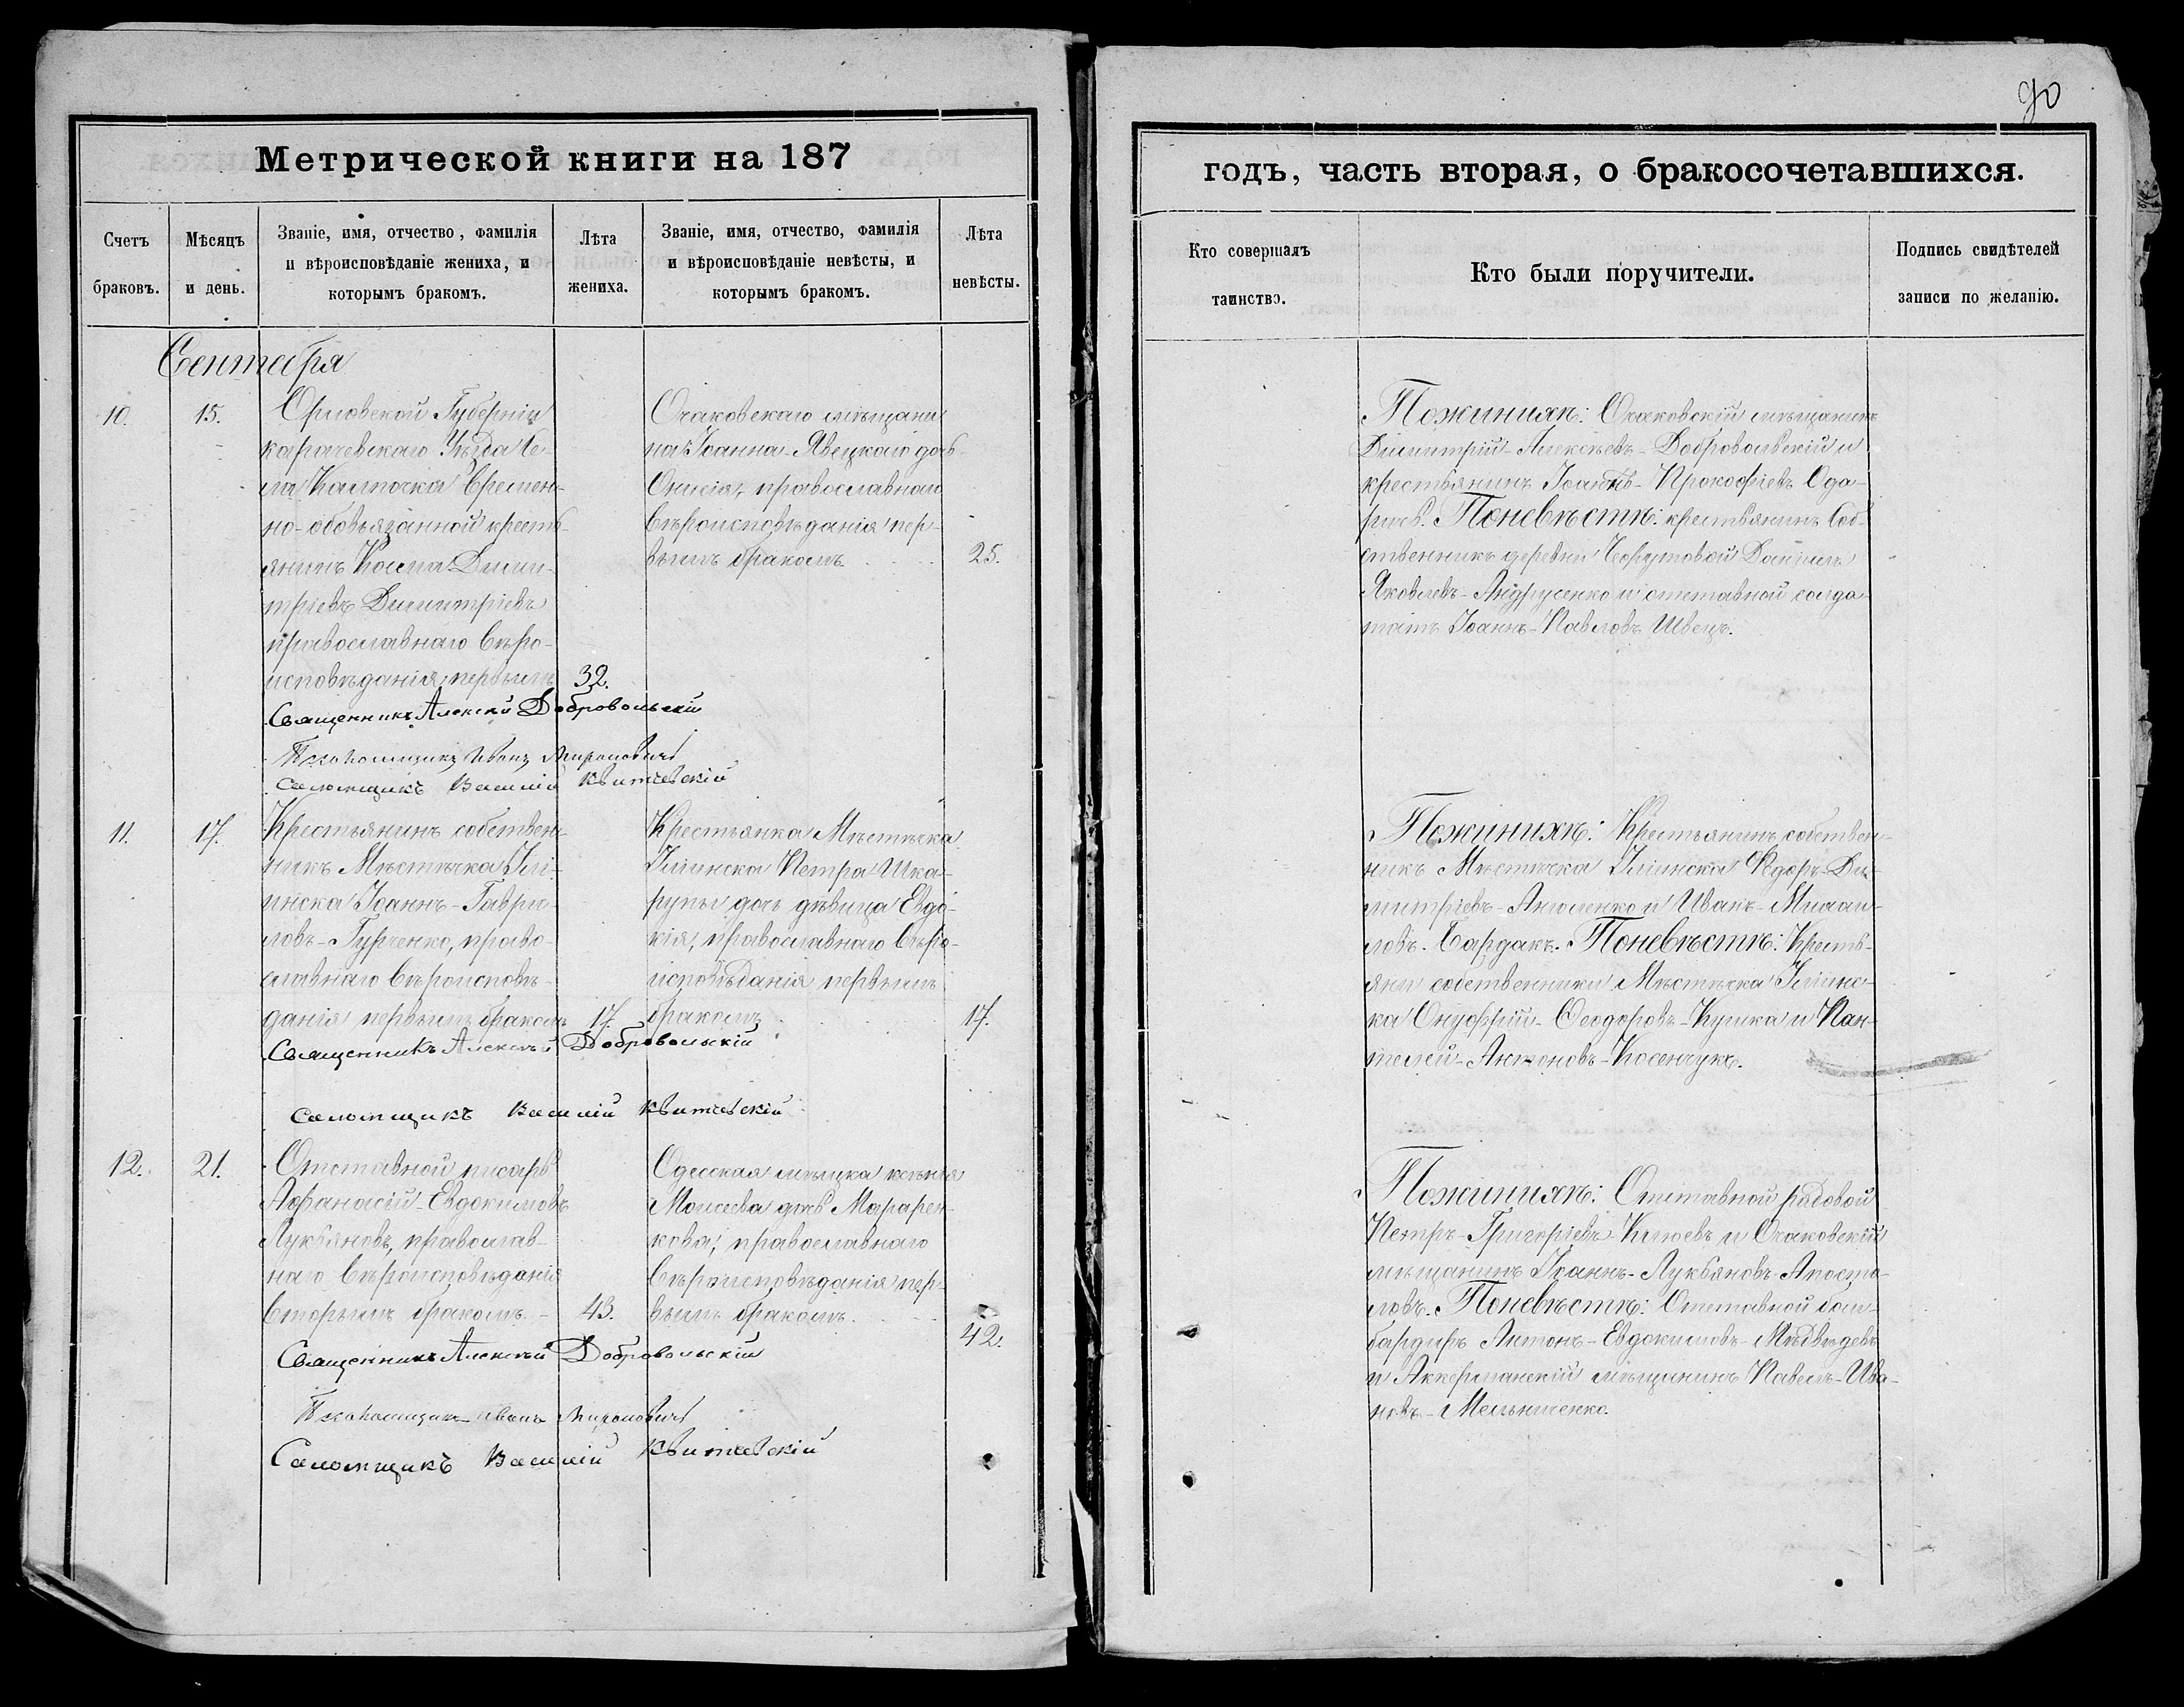 90
Метрической книги на 187
годъ, часть вторая, о бракосочетавшихся.
Счетъ браковъ.
Мѣсяцъ и день.
Званіе, имя, отчество, фамилія и вѣроисповѣданіе жениха, и которымъ бракомъ.
Лѣта жениха.
Званіе, имя, отчество, фамилія и вѣроисповѣданіе невѣсты, и которымъ бракомъ.
Лѣта невѣсты.
Кто совершалъ таинство.
Кто были поручители.
Подпись свидѣтелей записи по желанію.
Сентября
10.
15.
Орловской Губерніи
карачевскаго Уѣзда Се-
ла Калпочка Времен-
но-обовьязанной кресть-
янинъ Косма Дими-
тріевъ Димитріевъ
православнаго Вѣро-
исповѣданія, первымъ
32.
Очаковскаго мѣщани-
на Іоанна-Явецкаго дочь
Онисія, православнаго
Вѣроисповѣданія пер-
вымъ бракомъ
25.
Священникъ Алексѣй Добровольскій
Иванъ Мироновичъ
Псаломщикъ Василій Квитчевскій
Пожинихѣ: Очаковскій мѣщанинъ
Димитрій-Алексѣевъ-Добровольскій и
крестьянинъ Іоаннъ-Прокофіевъ Ода-
ричъ. Поневѣстѣ: крестьянинъ Соб-
ственникъ деревни Даніилъ
Яковлевъ-Андрусенко и отставной солда-
татъ Іоаннъ-Павловъ Швецъ.
11.
17.
Крестьянинъ собствен-
никъ Мѣстечка Іли-
инска Іоаннъ-Гаври-
ловъ-Гурченко, право-
славнаго Вѣроисповѣ-
данія первымъ бракомъ
17.
Крестьянка Мѣстечка
Ілиинска Петра Шка-
рупы дочь дѣвица Евдо-
кія, православнаго Вѣро-
исповѣданія первымъ
бракомъ
17.
Священникъ Алексѣй Добровольскій
Псаломщикъ Василій Квитчевскій
Пожинихѣ: Крестьянинъ собствен-
никъ Мѣстечка Ілиинска Ѳедоръ-Ди-
митріевъ- и Иванъ-Михаи-
ловъ-Бардакъ. Поневѣстѣ: Кресть-
яни собственники Мѣстечка Ілиинс-
ка Онуфрій-Ѳеодоровъ-Кушка и Пан-
телей-Антоновъ-Косенчукъ.
12.
21.
Отставной писарь
Афанасій-Евдокимовъ
Лукьяновъ, православ-
наго Вѣроисповѣданія
Вторымъ бракомъ
43.
Одесская мѣщка ксенія
Моисеева дочь Марарен-
кова, православнаго
Вѣроисповѣданія пер-
вымъ бракомъ.
42.
Священникъ Алексѣй Добровольскій
Иванъ Мироновичъ
Псаломщикъ Василій Квитчевскій
Пожинихѣ: Отставной рядовой
Петръ-Григоріевъ-Клюевъ и Очаковскій
мѣщанинъ Іоаннъ-Лукьяновъ-Апосто-
ловъ. Поневѣстѣ: Отставной бом-
бардиръ Антонъ-Евдокимовъ-Мѣдвѣдевъ
и Аккерманскій мѣщанинъ Павелъ-Ива-
новъ-Мельниченко.